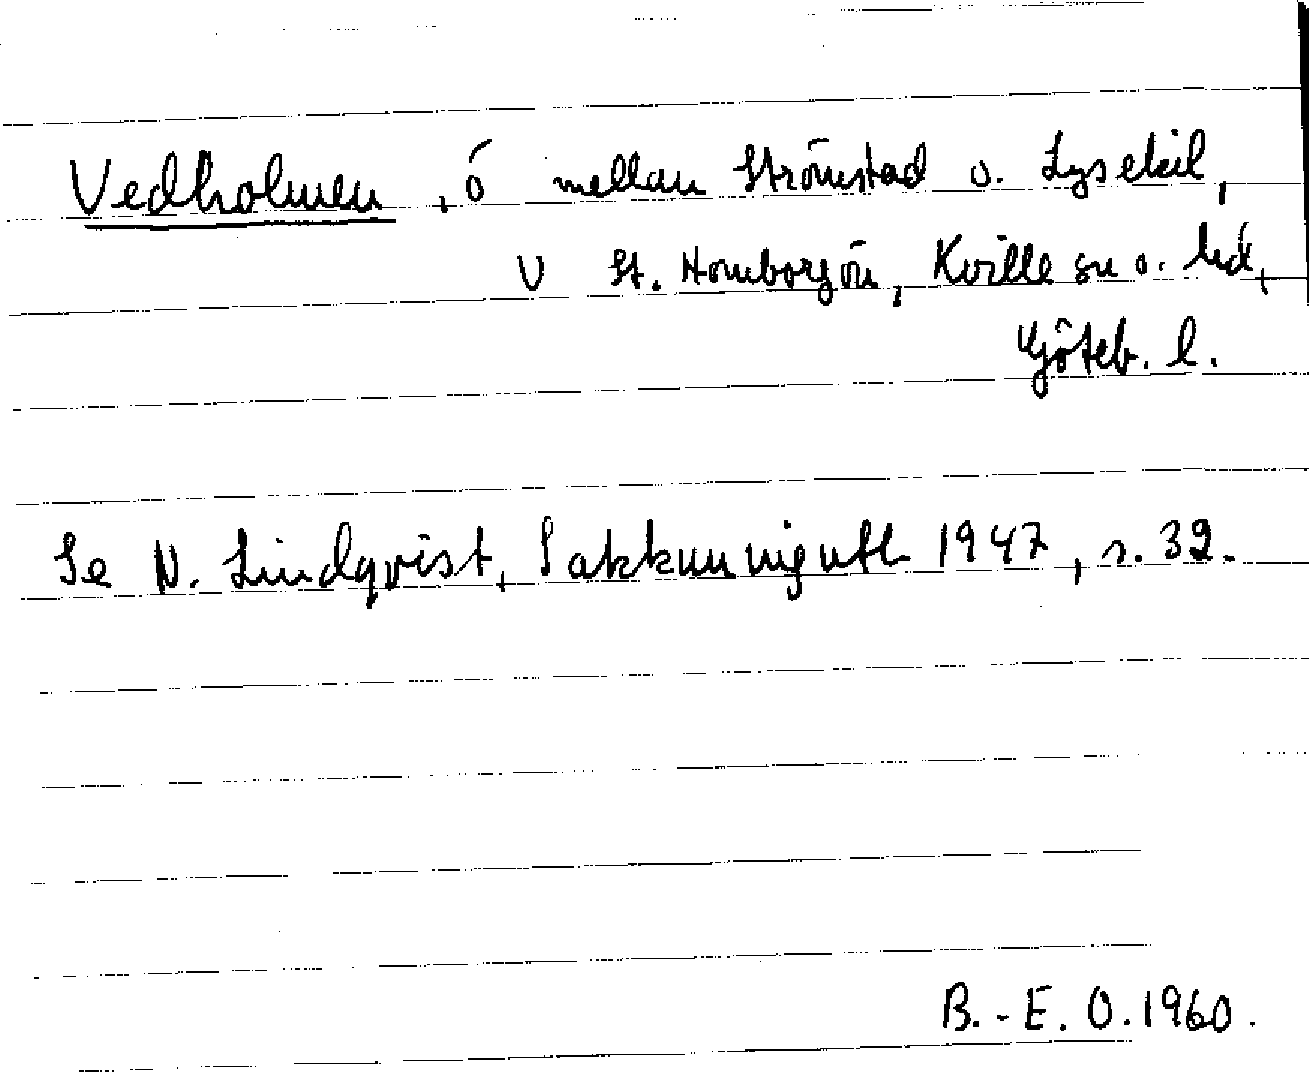 Vedholmen, ö mellan Strömstad o. Lysekil,
V St. Hornborgön, Kville sn o. hd,
Göteb. l.
Se N. Lindqvist, Sakkunnigutl. 1947, s. 32.
B.-E. O. 1960.